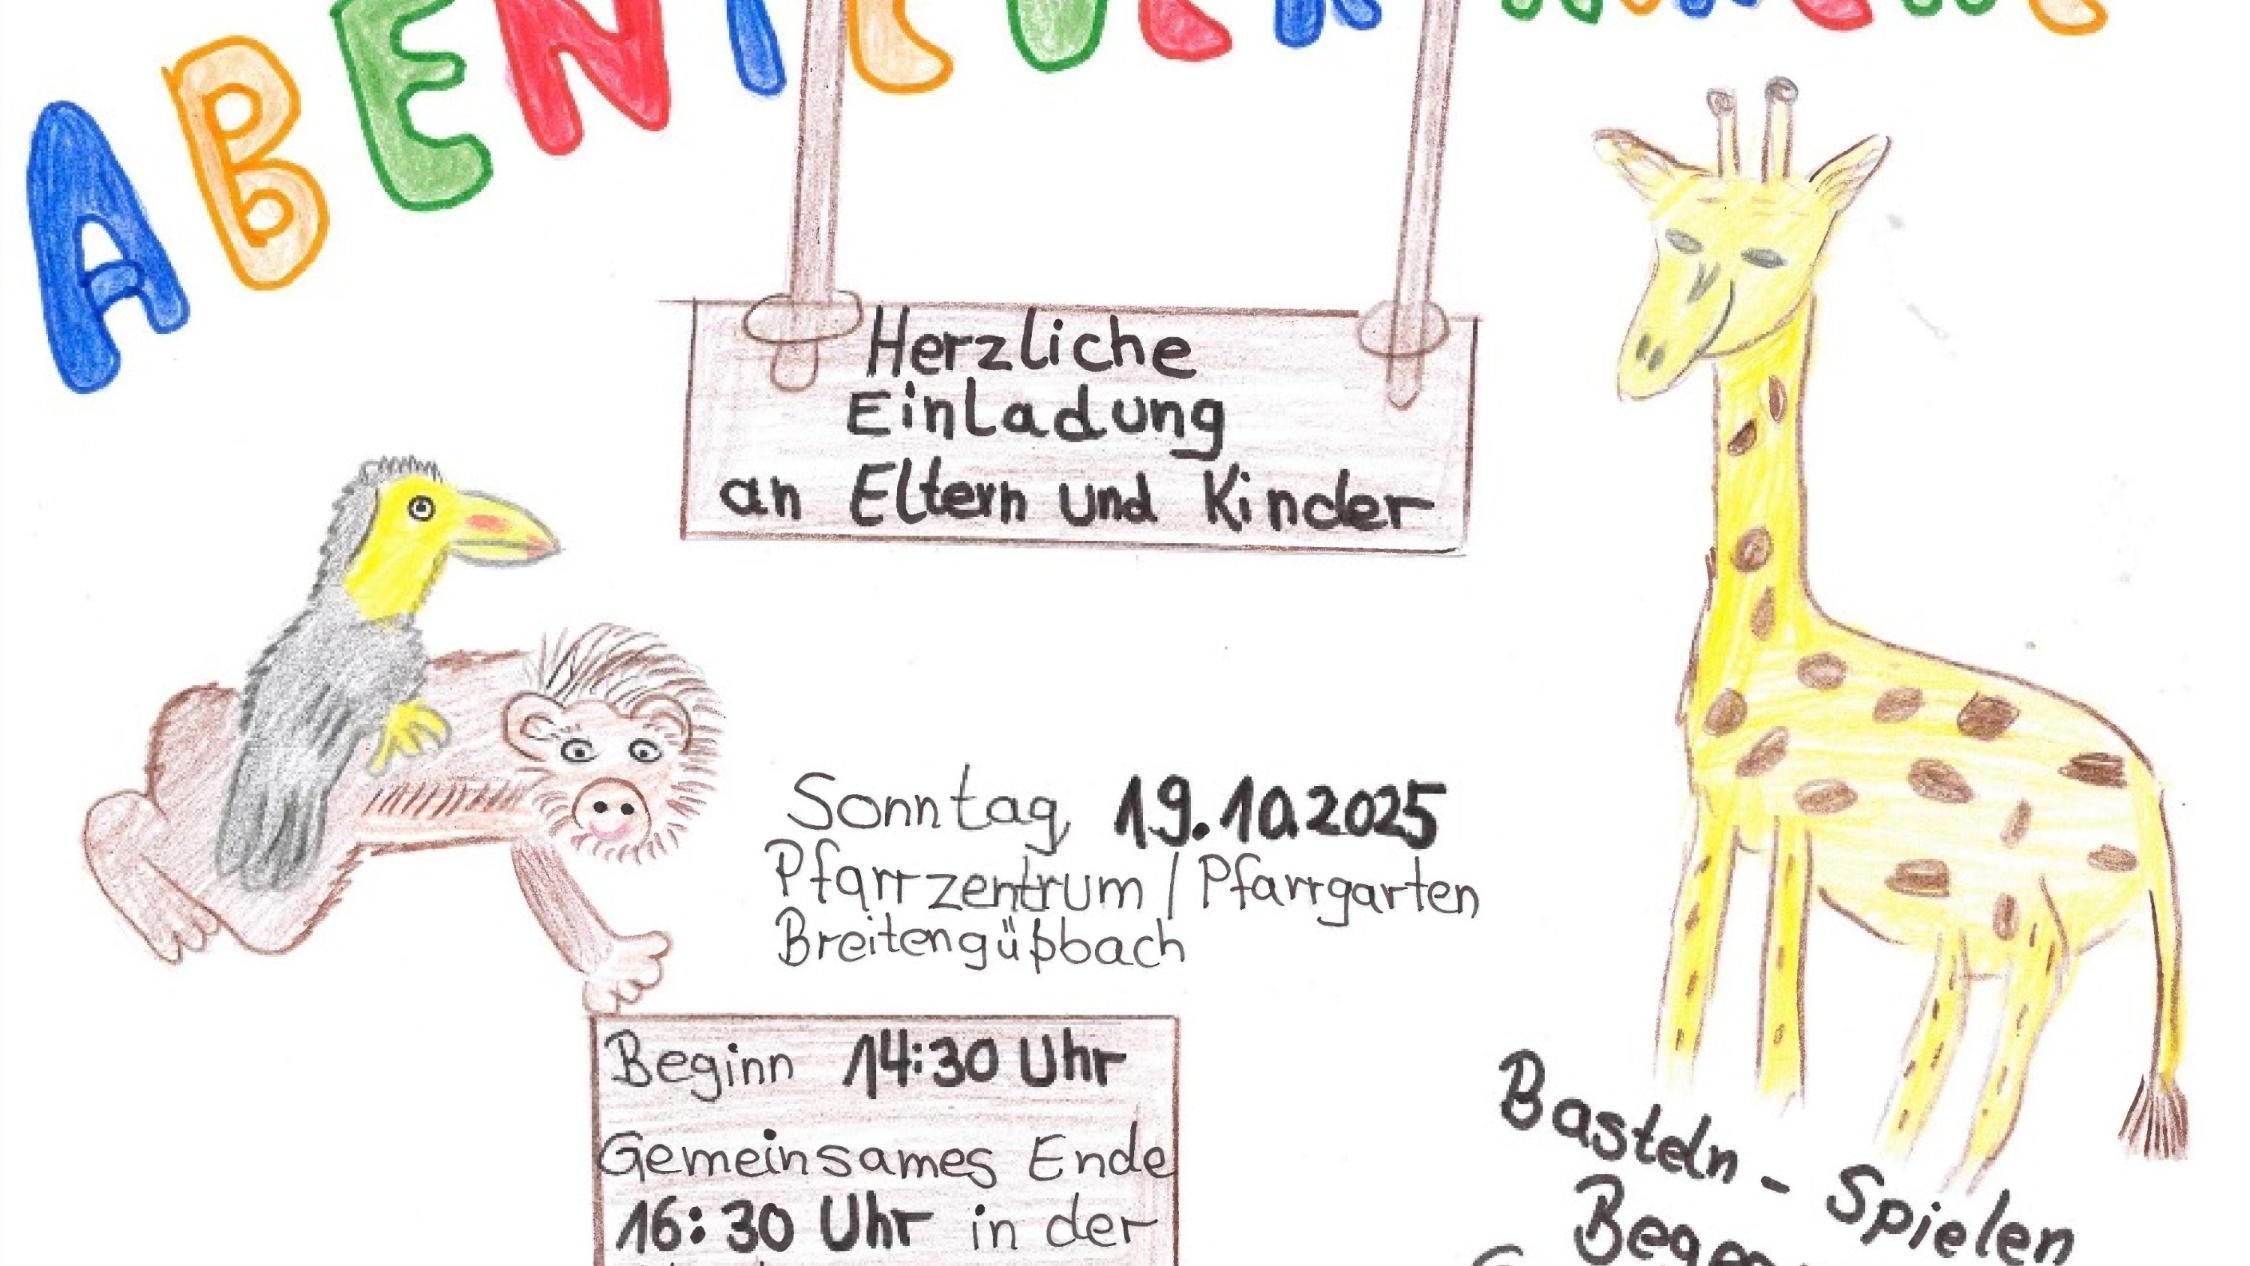 ABENTEUER KIRCHE
Herzliche
Einladung
an Eltern und Kinder
Sonntag, 19.10.2025
Pfarrzentrum / Pfarrgarten
Breitengüßbach
Beginn 14:30 Uhr
Gemeinsames Ende
16:30 Uhr in der
Basteln - Spielen